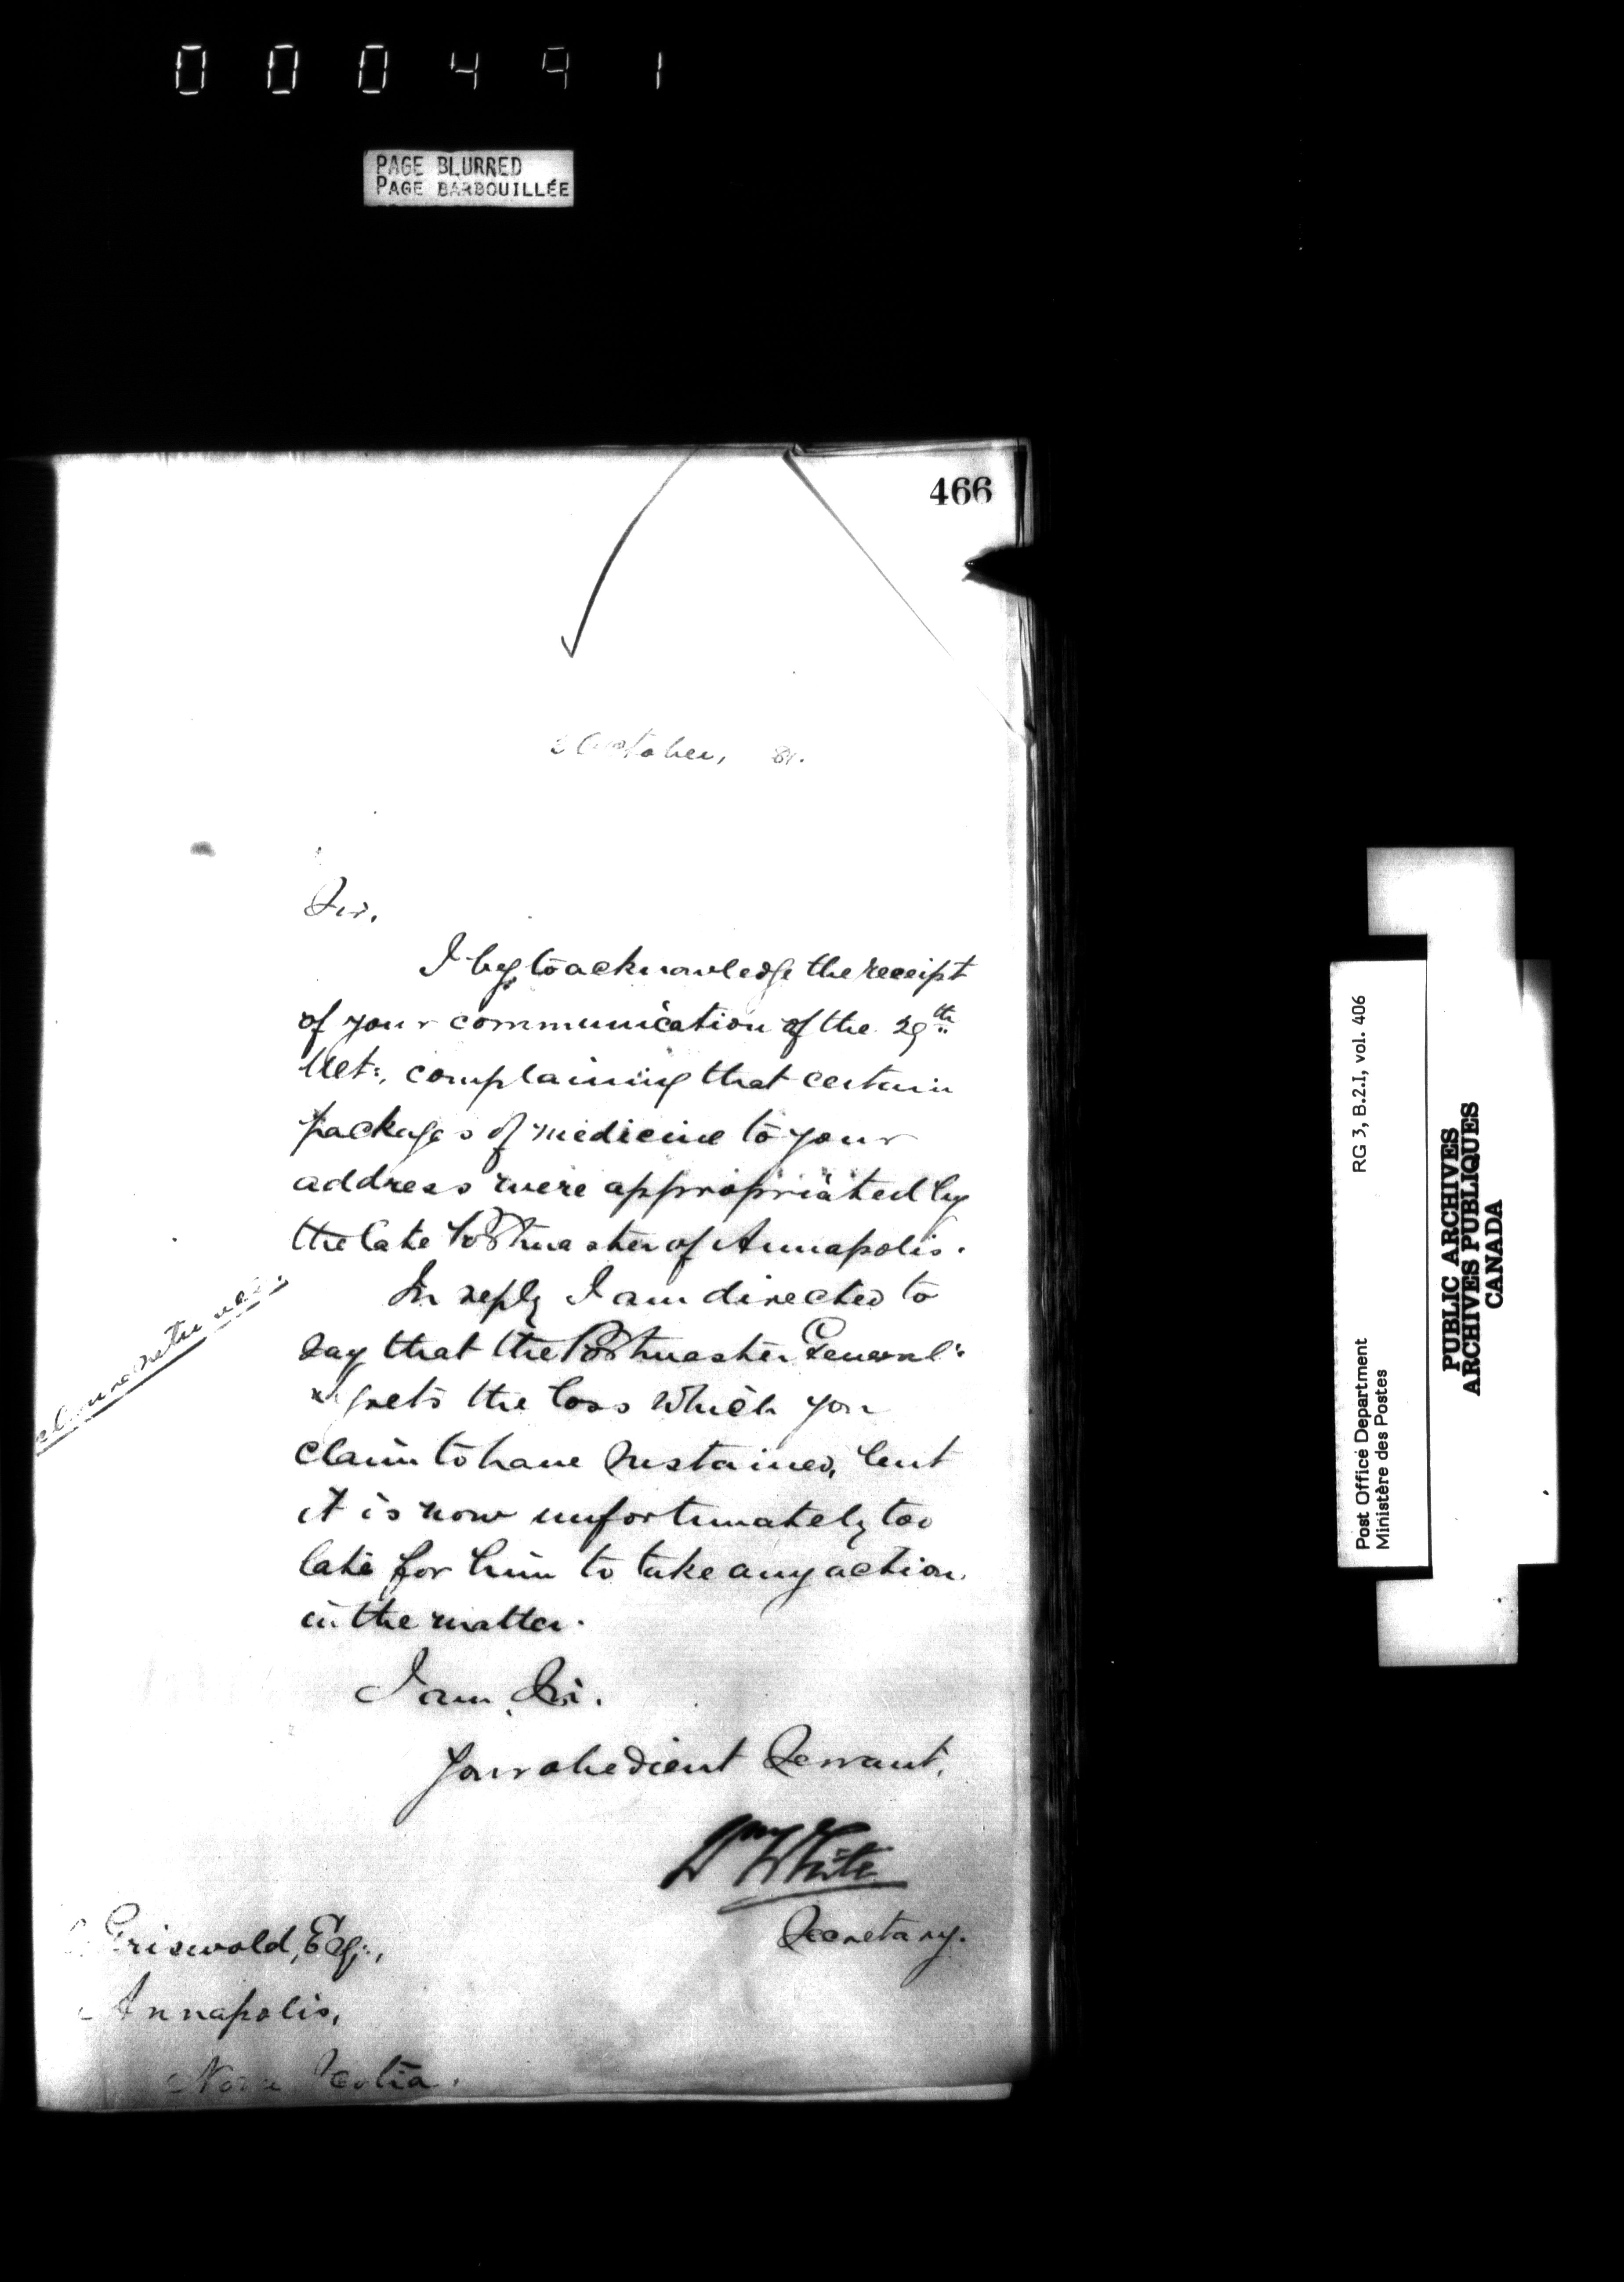 000491
PAGE BLURRED
PAGE BARBOUILLÉE
466
October, 81.
Sir,
I beg to acknowledge the receipt
of your communication of the 29th
Ult:, complaining that certain
packages of medicine to your
address were appropriated by
the late Postmaster of Annapolis.
In reply I am directed to
say that the Postmaster General
regrets the loss which you
claim to have sustained, but
it is now unfortunately too
late for him to take any action
in the matter.
I am, Sir,
Your obedient Servant,
Wm White
Secretary.
Griswold, Esq:,
Annapolis,
Nova Scotia.
RG 3, B.2.I, vol. 406
Post Office Department
Ministère des Postes
PUBLIC ARCHIVES
ARCHIVES PUBLIQUES
CANADA